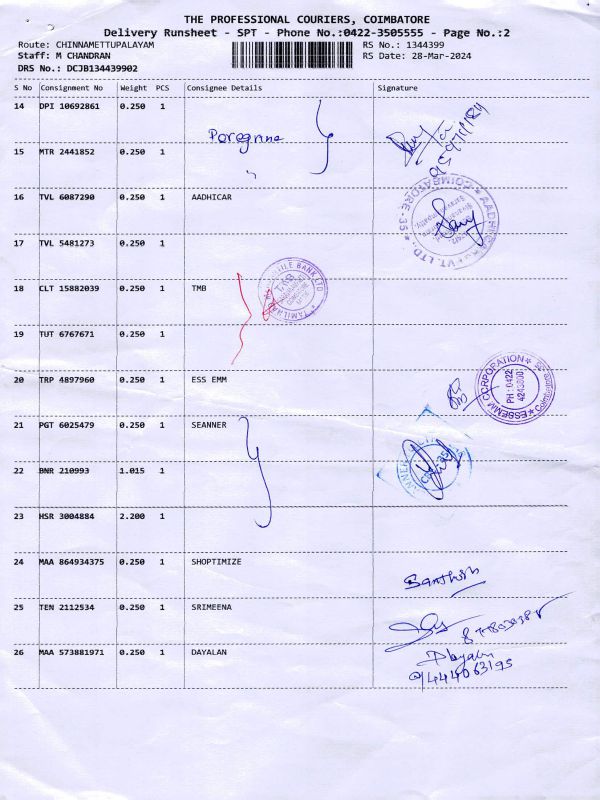 THE PROFESSIONAL COURIERS, COIMBATORE
Delivery Runsheet - SPT - Phone No.:0422-3505555 - Page No.:2
Route: CHINNAMETTUPALAYAM RS No.: 1344399
Staff: M CHANDRAN RS Date: 28-Mar-2024
DRS No.: DCJB134439902
S No Consignment No Weight PCS Consignee Details Signature
14 DPI 10692861 0.250 1
Peregrine
15 MTR 2441852 0.250 1
16 TVL 6087290 0.250 1 AADHICAR
COIMBATORE-35
17 TVL 5481273 0.250 1
18 CLT 15882039 0.250 1 TMB
19 TUT 6767671 0.250 1
20 TRP 4897960 0.250 1 ESS EMM
ESSEMM CORPORATION
PH : 0422
4243800
21 PGT 6025479 0.250 1 SEANNER
22 BNR 210993 1.015 1
23 HSR 3004884 2.200 1
24 MAA 864934375 0.250 1 SHOPTIMIZE
Santhosh
25 TEN 2112534 0.250 1 SRIMEENA
26 MAA 573881971 0.250 1 DAYALAN
Dayalan
9444063195